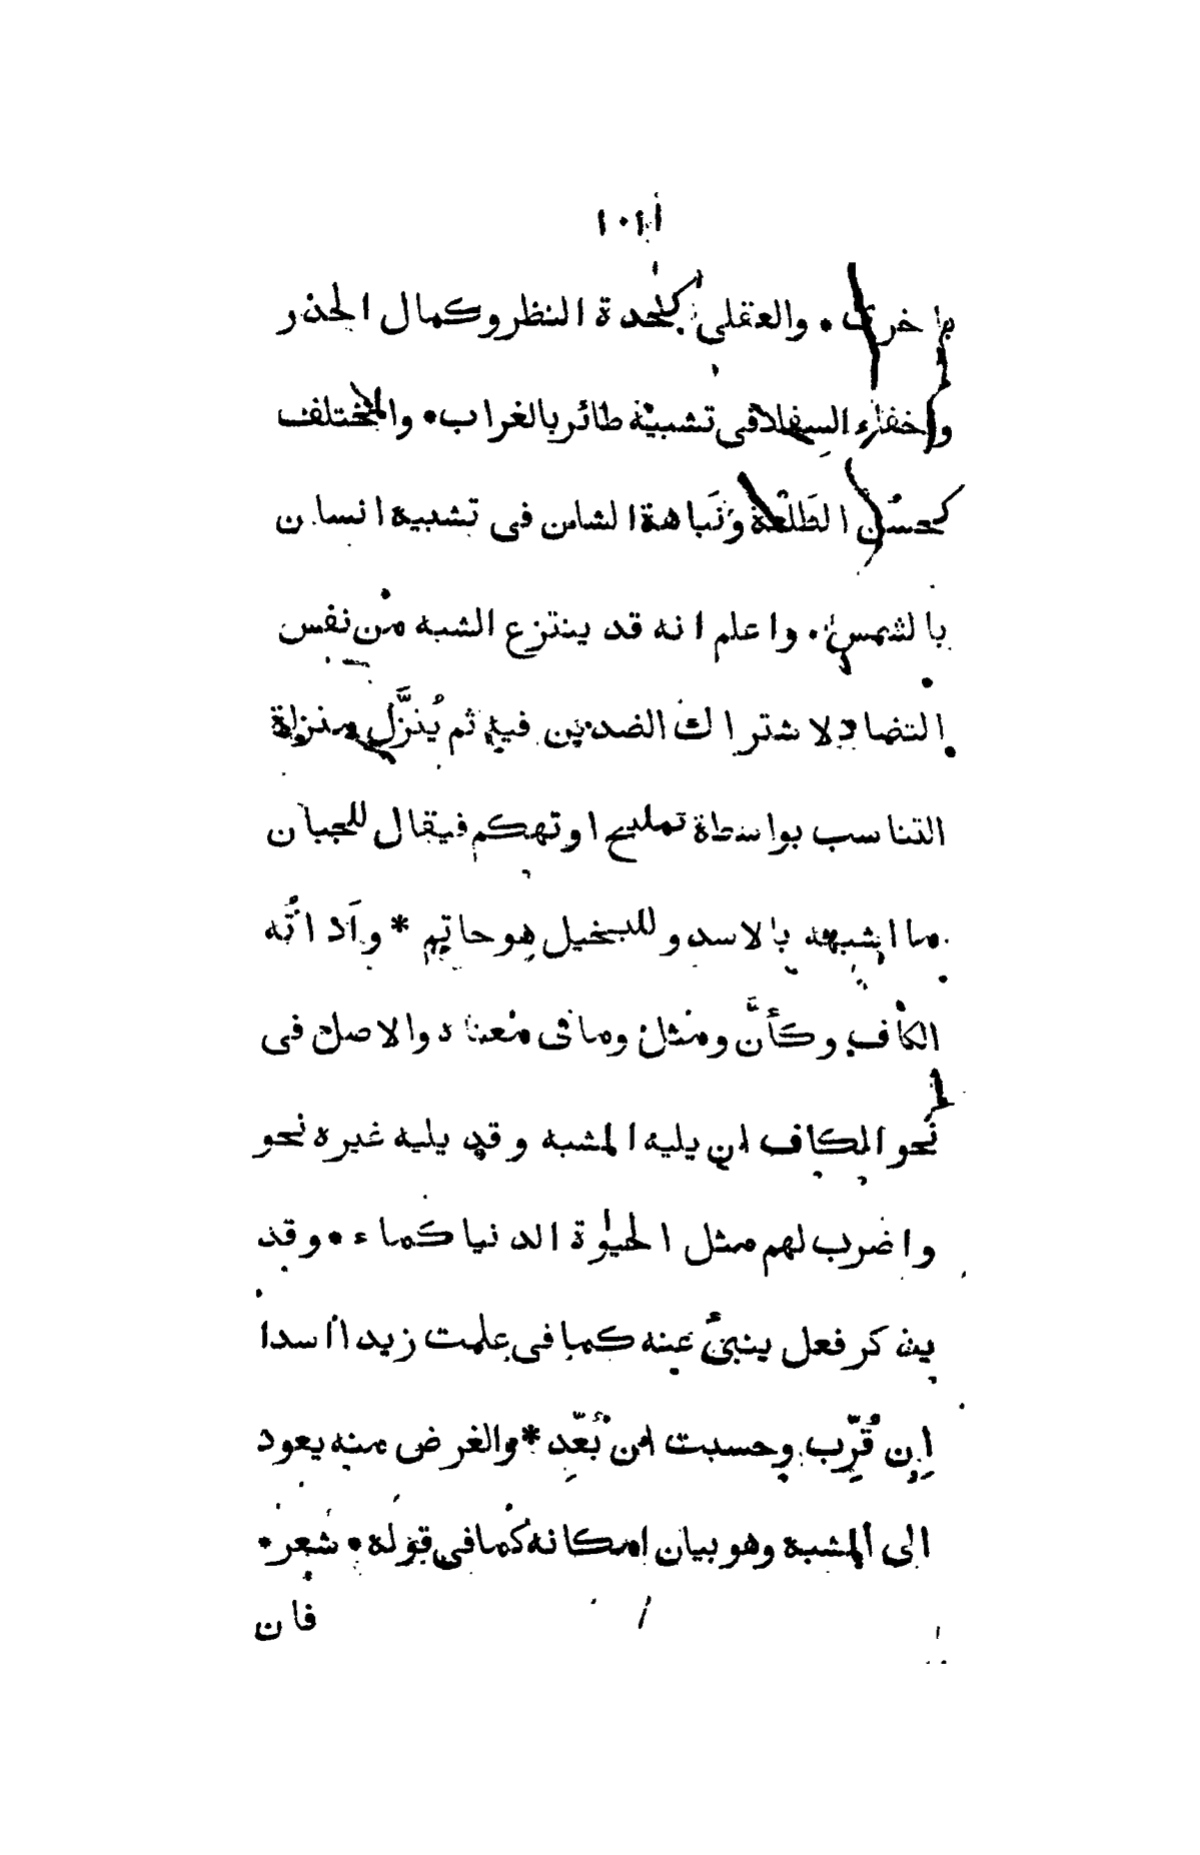 باخرى • والعقلى كحدة النظر وكمال الحذر
واخفاء السفاد فى تشبيه طائر بالغراب • والمختلف
كحسن الطَلْعة ونَباهة الشان فى تشبيه انسان
بالشمس • واعلم انه قد ينتزع الشبه من نفس
التضاد لاشتراك الضدين فيه ثم يُنزَّل منزلة
التناسب بواسطة تمليح او تهكم فيقال للجبان
ما اشبهه بالاسد وللبخيل هو حاتم * واَداتُه
الكاف وكأنَّ ومثل وما فى معناه والاصل فى
نحو الكاف ان يليه المشبه وقد يليه غيره نحو
واضرب لهم مثل الحيٰوة الدنيا كماء • وقد
يذكر فعل ينبئُ عنه كما فى علمت زيدا اسدا
اِن قُرِّب وحسبت ان بُعِّد * والغرض منه يعود
الى المشبه وهو بيان امكانه كما فى قوله • شعر •
فان